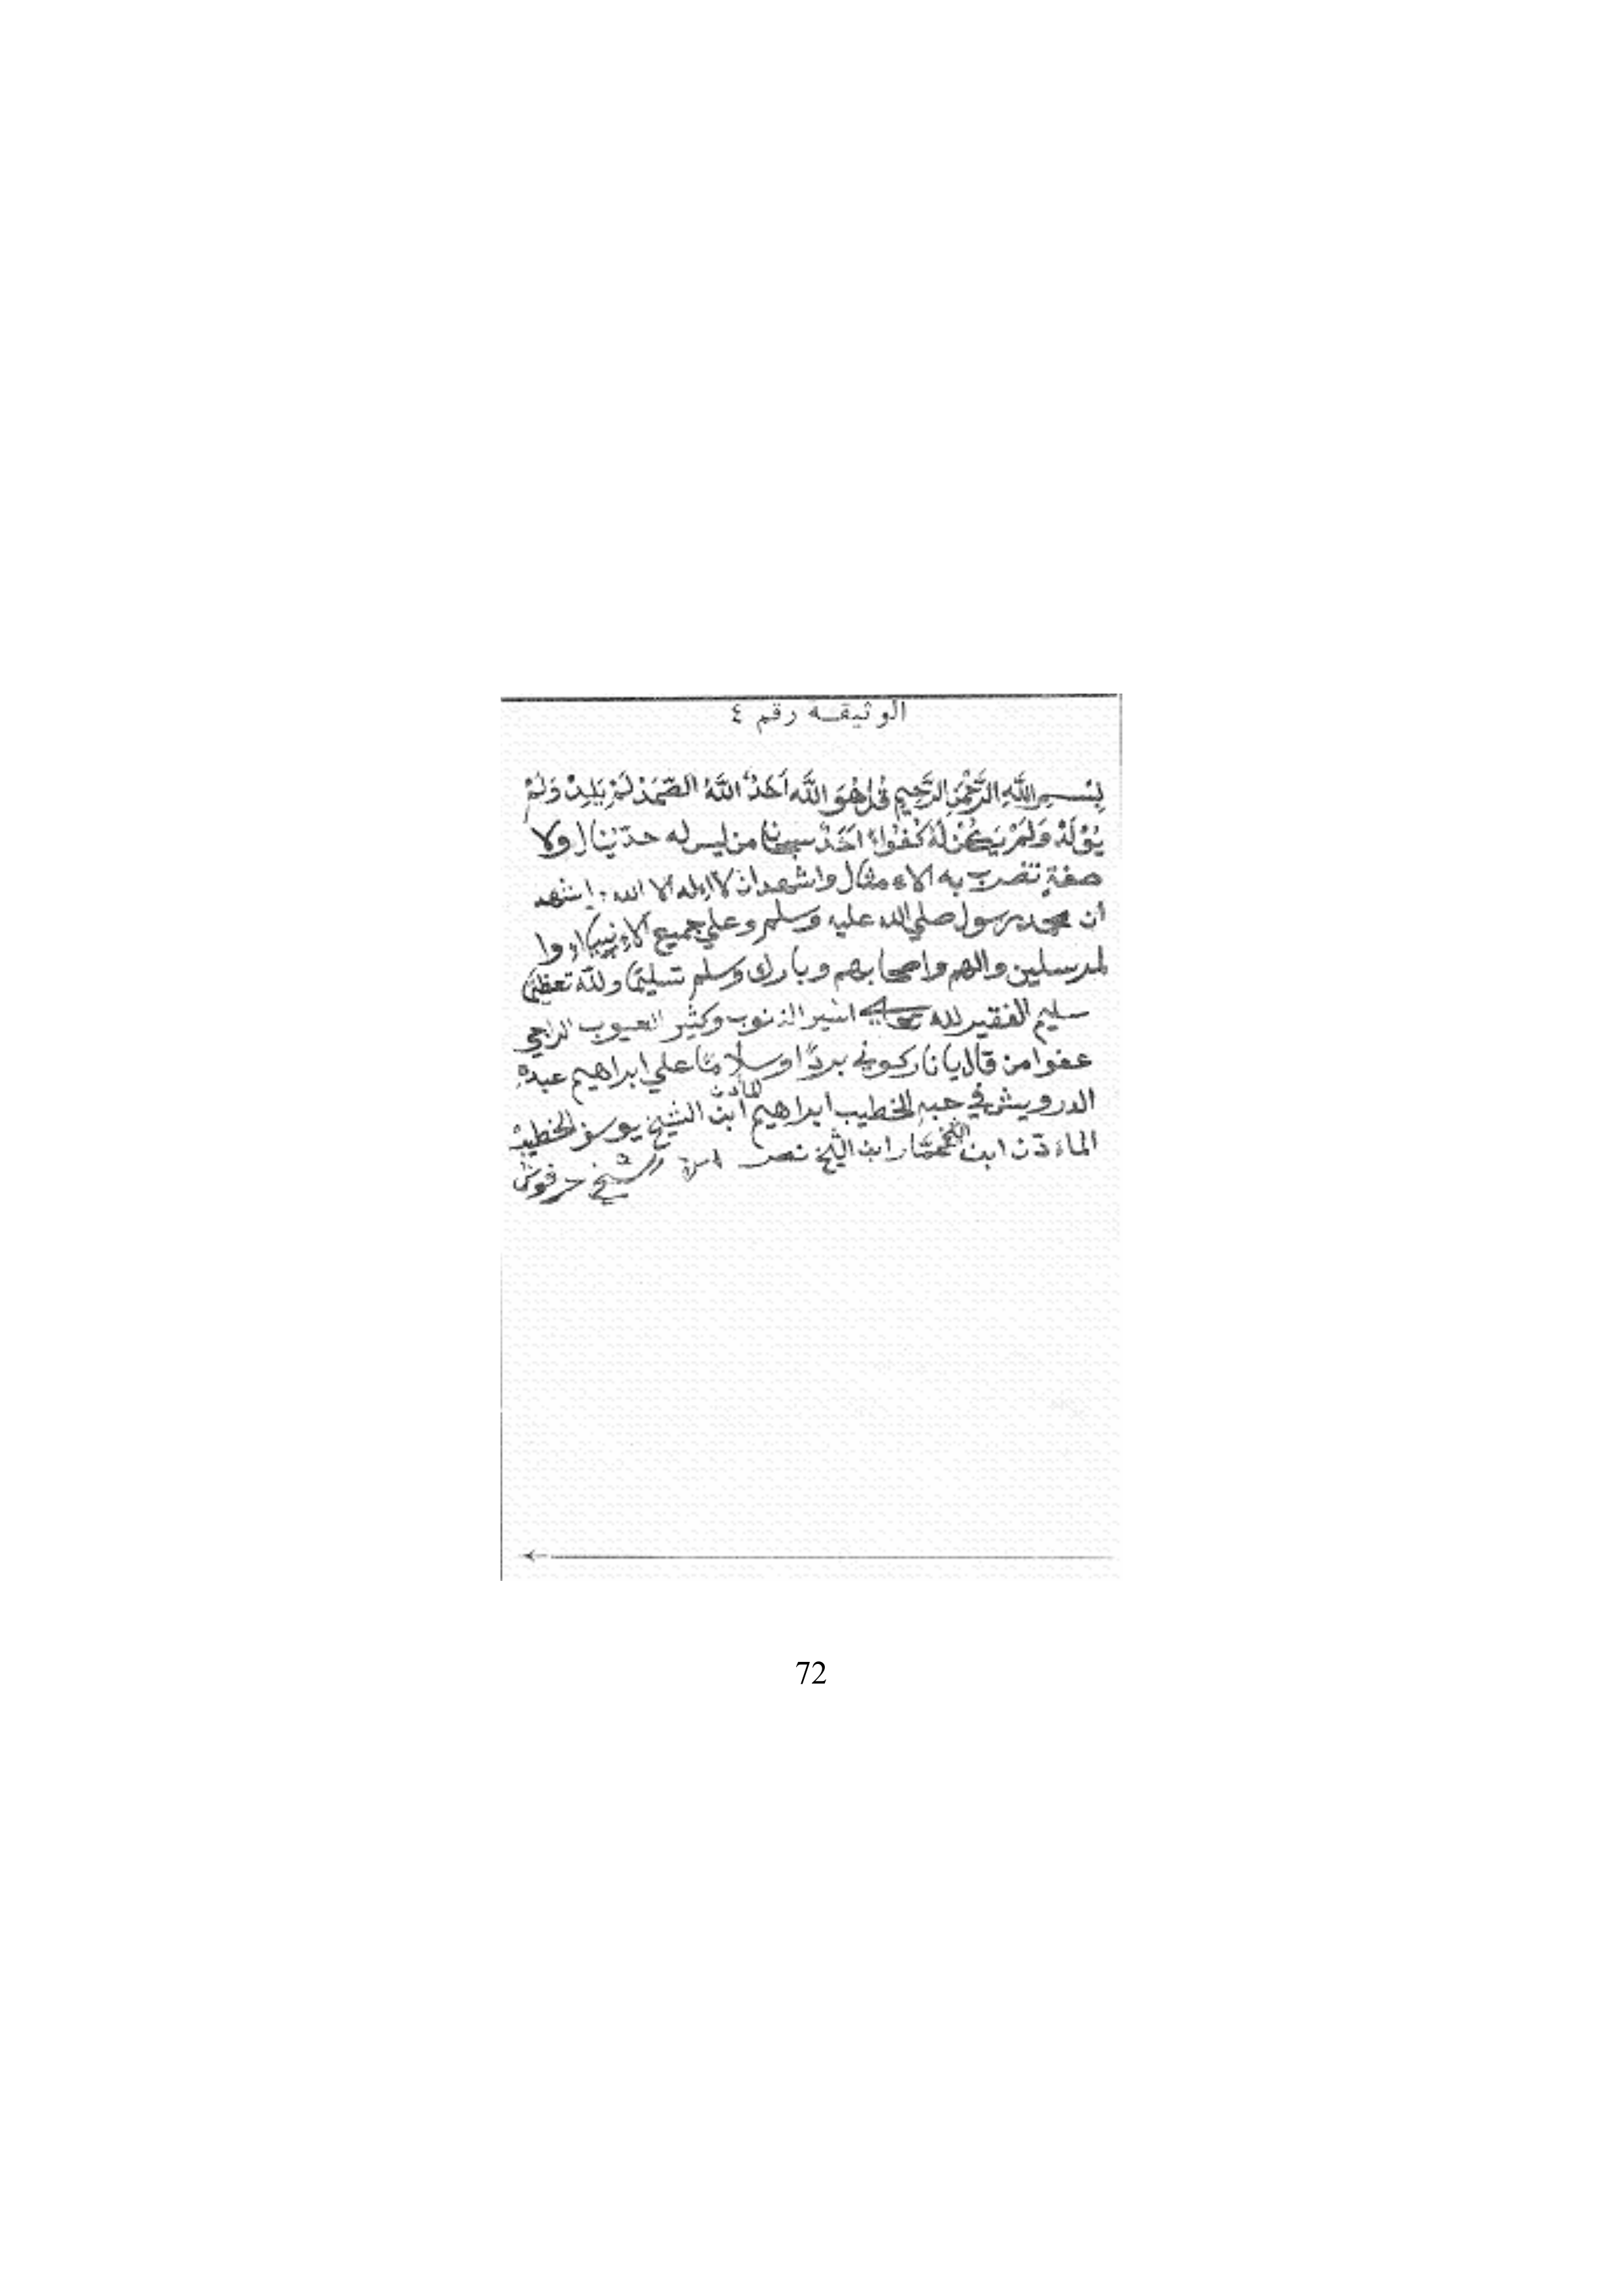 الوثيقة رقم ٤
بِسْمِ اللَّهِ الرَّحْمَنِ الرَّحِيمِ قُلْ هُوَ اللَّه أَحَدٌ اللَّهُ الصَّمَدْ لَمْ يَلِدْ وَلَمْ
يُوْلَدْ وَلَمْ يَكُنْ لَهُ كُفُواً أَحَدْ سبحان من ليس له حدّ ينال ولا
صفةٍ تضرب به الاءمثال واشهد ان لا اله الا الله اشهد
أن محمد رسول صلي الله عليه وسلم وعلي جميع الاءنبياء وا
لمرسلين والهم واصحابهم وبارك وسلم تسليما ولله تعظيما
سليم الفقير لله الذنوب وكثير العيوب الراجي
عفوا من قال يا نار كوني برداً وسلاماً علي ابراهيم عبده
الدرويش في حبه الخطيب ابراهيم المأذن ابن الشيخ يوسف الخطيب
الماءذن ابن الشيخ مختار ابن الشيخ نصر
الشيخ حرفوش
72